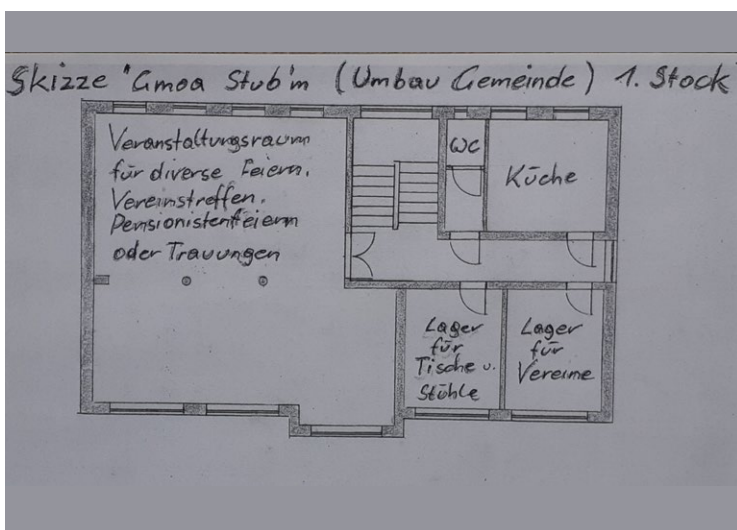 Skizze "Gmoa Stub'm (Umbau Gemeinde) 1. Stock
Veranstaltungsraum
für diverse Feiern,
Vereinstreffen.
Pensionistenfeiern
oder Trauungen
WC
Küche
Lager
für
Tische u.
Stühle
Lager
für
Vereine